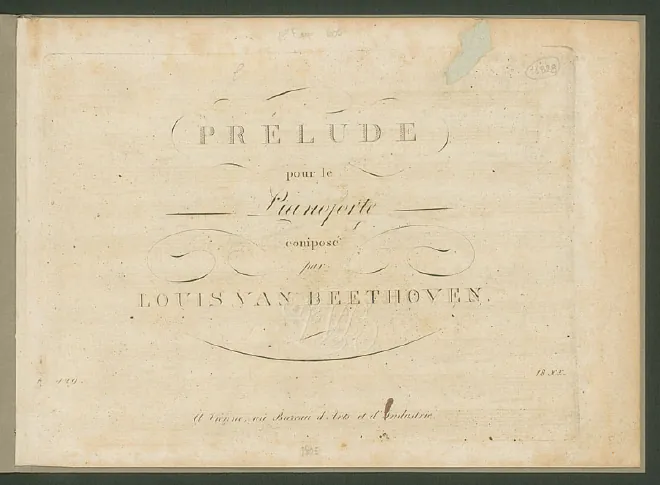 PRÉLUDE
pour le
Pianoforte
composé
par
LOUIS VAN BEETHOVEN.
429.
18 XX.
A Vienne, au Bureau d'Arts et d'Industrie
1805